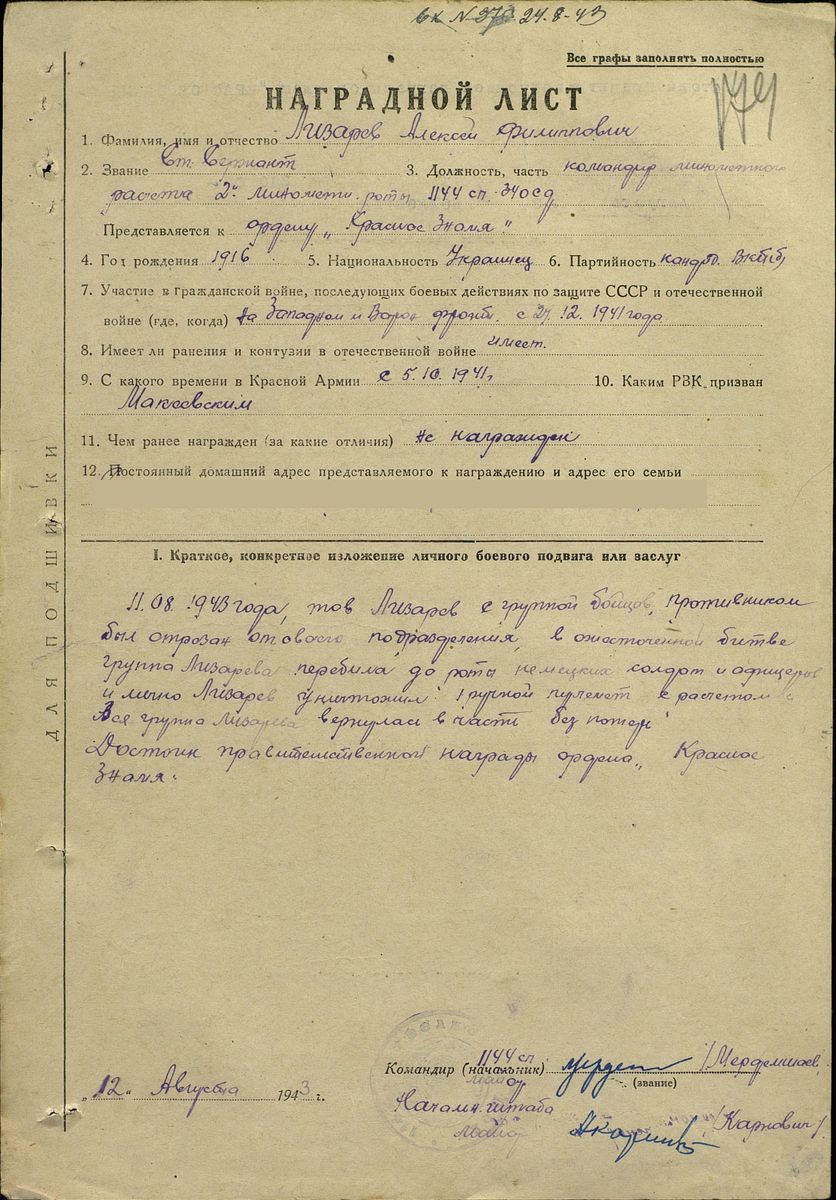 24.8-43
Все графы заполнять полностью
179
НАГРАДНОЙ ЛИСТ
1. Фамилия, имя и отчество Лизарев Алексей Филиппович
2. Звание Ст. Сержант 3. Должность, часть командир минометного
расчета 2й миномети. роты 1144 сп. 340сд
Представляется к ордену „Красное Знамя“
4. Год рождения 1916 5. Национальность Украинец 6. Партийность канд. ВКП(б)
7. Участие в гражданской войне, последующих боевых действиях по защите СССР и отечественной
войне (где, когда) На Западном и Ворон фронт. с 27.12.1941 года
8. Имеет ли ранения и контузии в отечественной войне имеет.
9. С какого времени в Красной Армии с 5.10.1941г 10. Каким РВК призван
Макеевским
11. Чем ранее награжден (за какие отличия) Не награжден
12. Постоянный домашний адрес представляемого к награждению и адрес его семьи
ДЛЯ ПОДШИВКИ
I. Краткое, конкретное изложение личного боевого подвига или заслуг
11.08.1943 года, тов Лизарев с группой бойцов, противником
был отрезан от своего подразделения, в ожесточенной битве
группа Лизарева перебила до роты немецких солдат и офицеров
и лично Лизарев уничтожил 1 ручной пулемет с расчетом
Вся группа Лизарева вернулась в часть без потерь
Достоин правительственной награды ордена „Красное
Знамя“
1144 сп
Командир (начальник)
майор (звание)
„12“ Августа 1943 г.
Начальн. штаба
майор /Карпович/